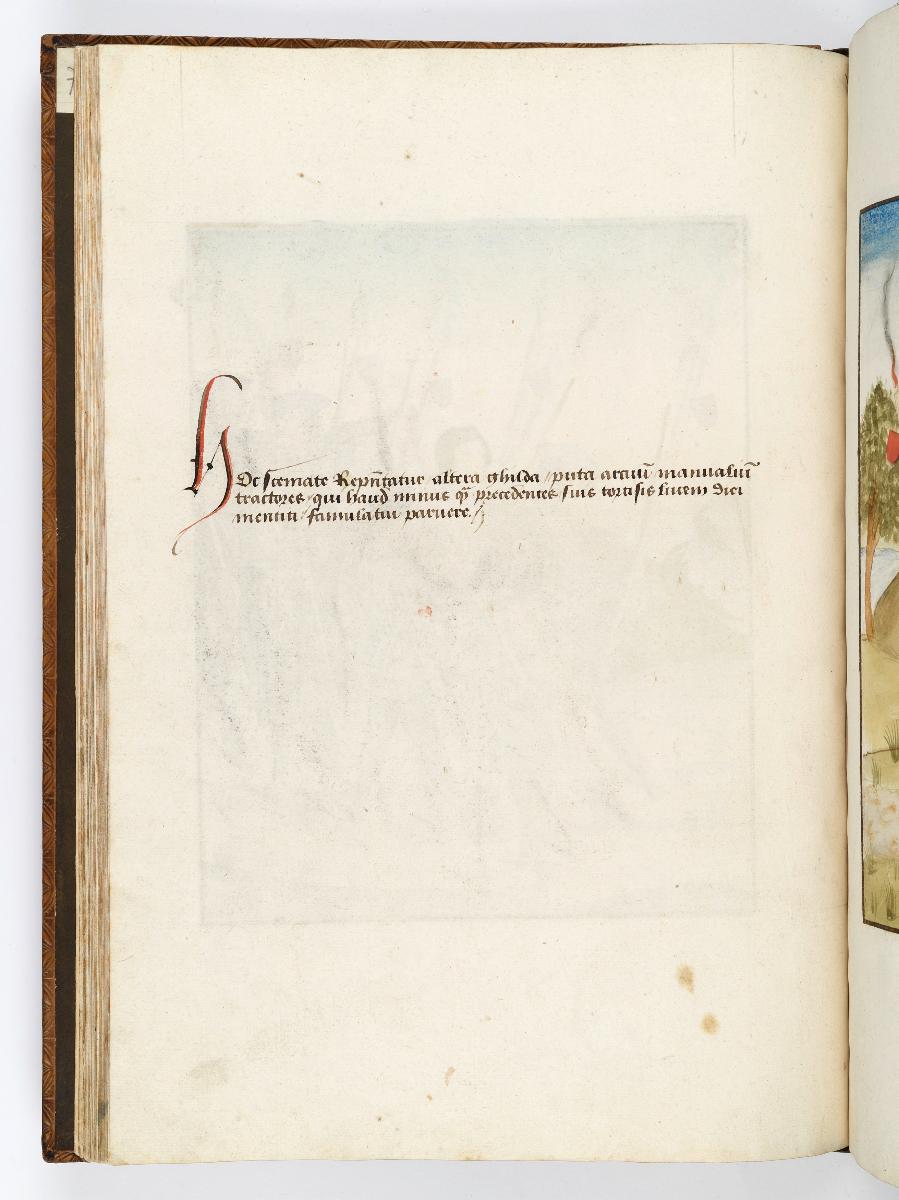 HOc scemate Rep̄ntatur altera ghilda / puta arcuū manualiū
tractores / qui haud minus q̄ precedentes suis tortisis lucem diei
mentiti / famulatui paruere. /